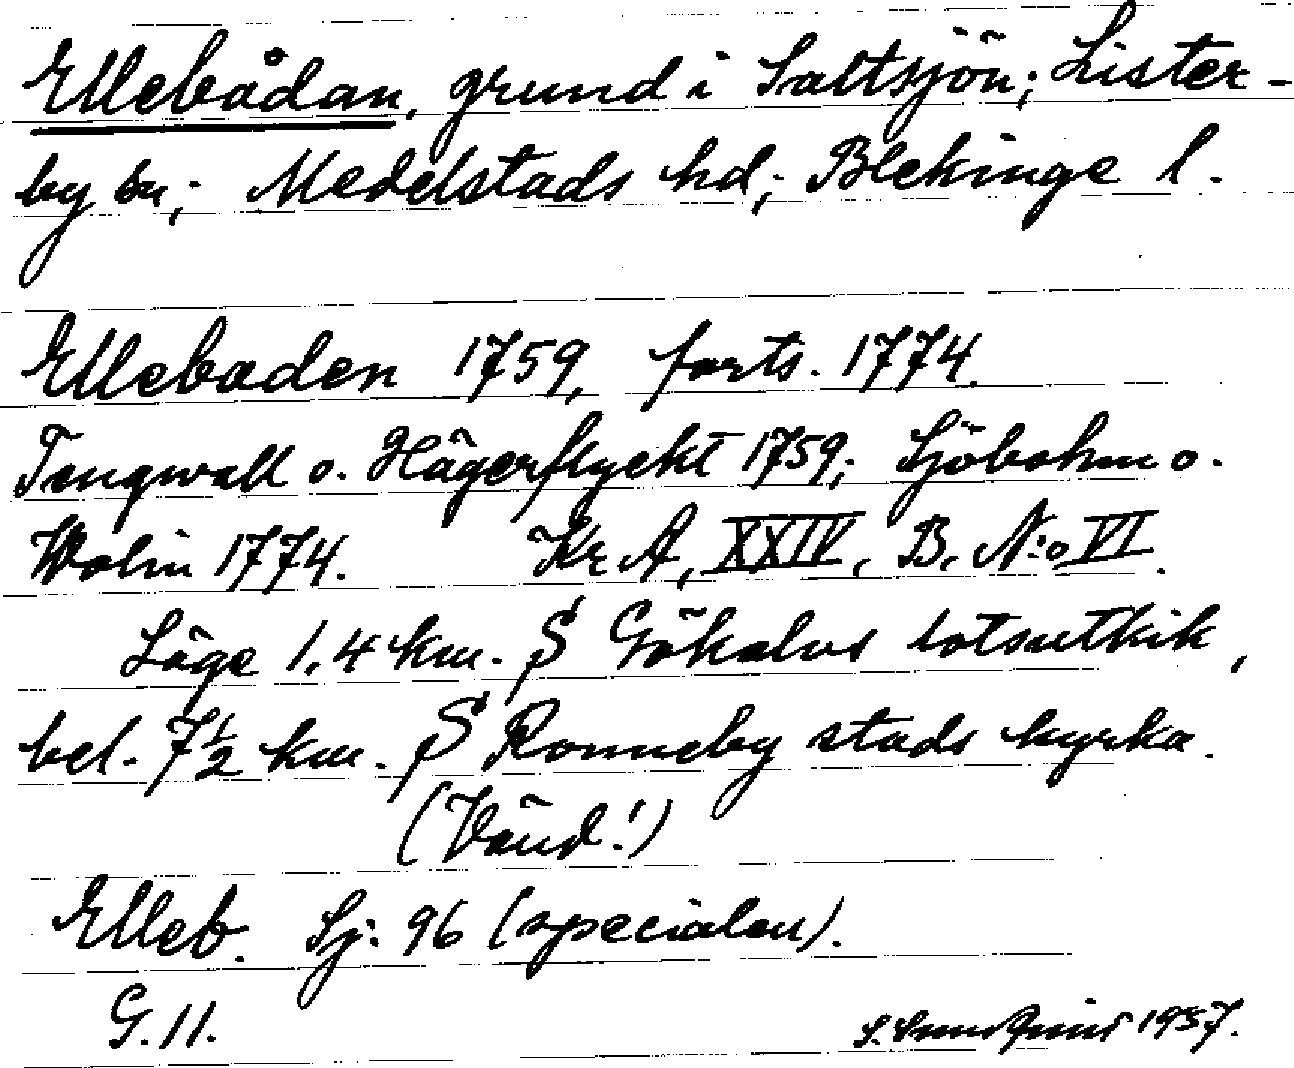 Ellebådan, grund i Saltsjön; Lister-
by sn; Medelstads hd; Blekinge l.
Ellebaden 1759, forts. 1774.
Tengwall o. Hägerflyckt 1759; Sjöbohm o.
Wolin 1774. Kr A, XXIV, B. N:o VI.
Läge 1,4 km. S Gökalvs lotsutkik,
bel. 7½ km. S Ronneby stads kyrka.
(Vänd!)
Elleb. Sj. 96 (specialen).
G. 11.
S. 1937.